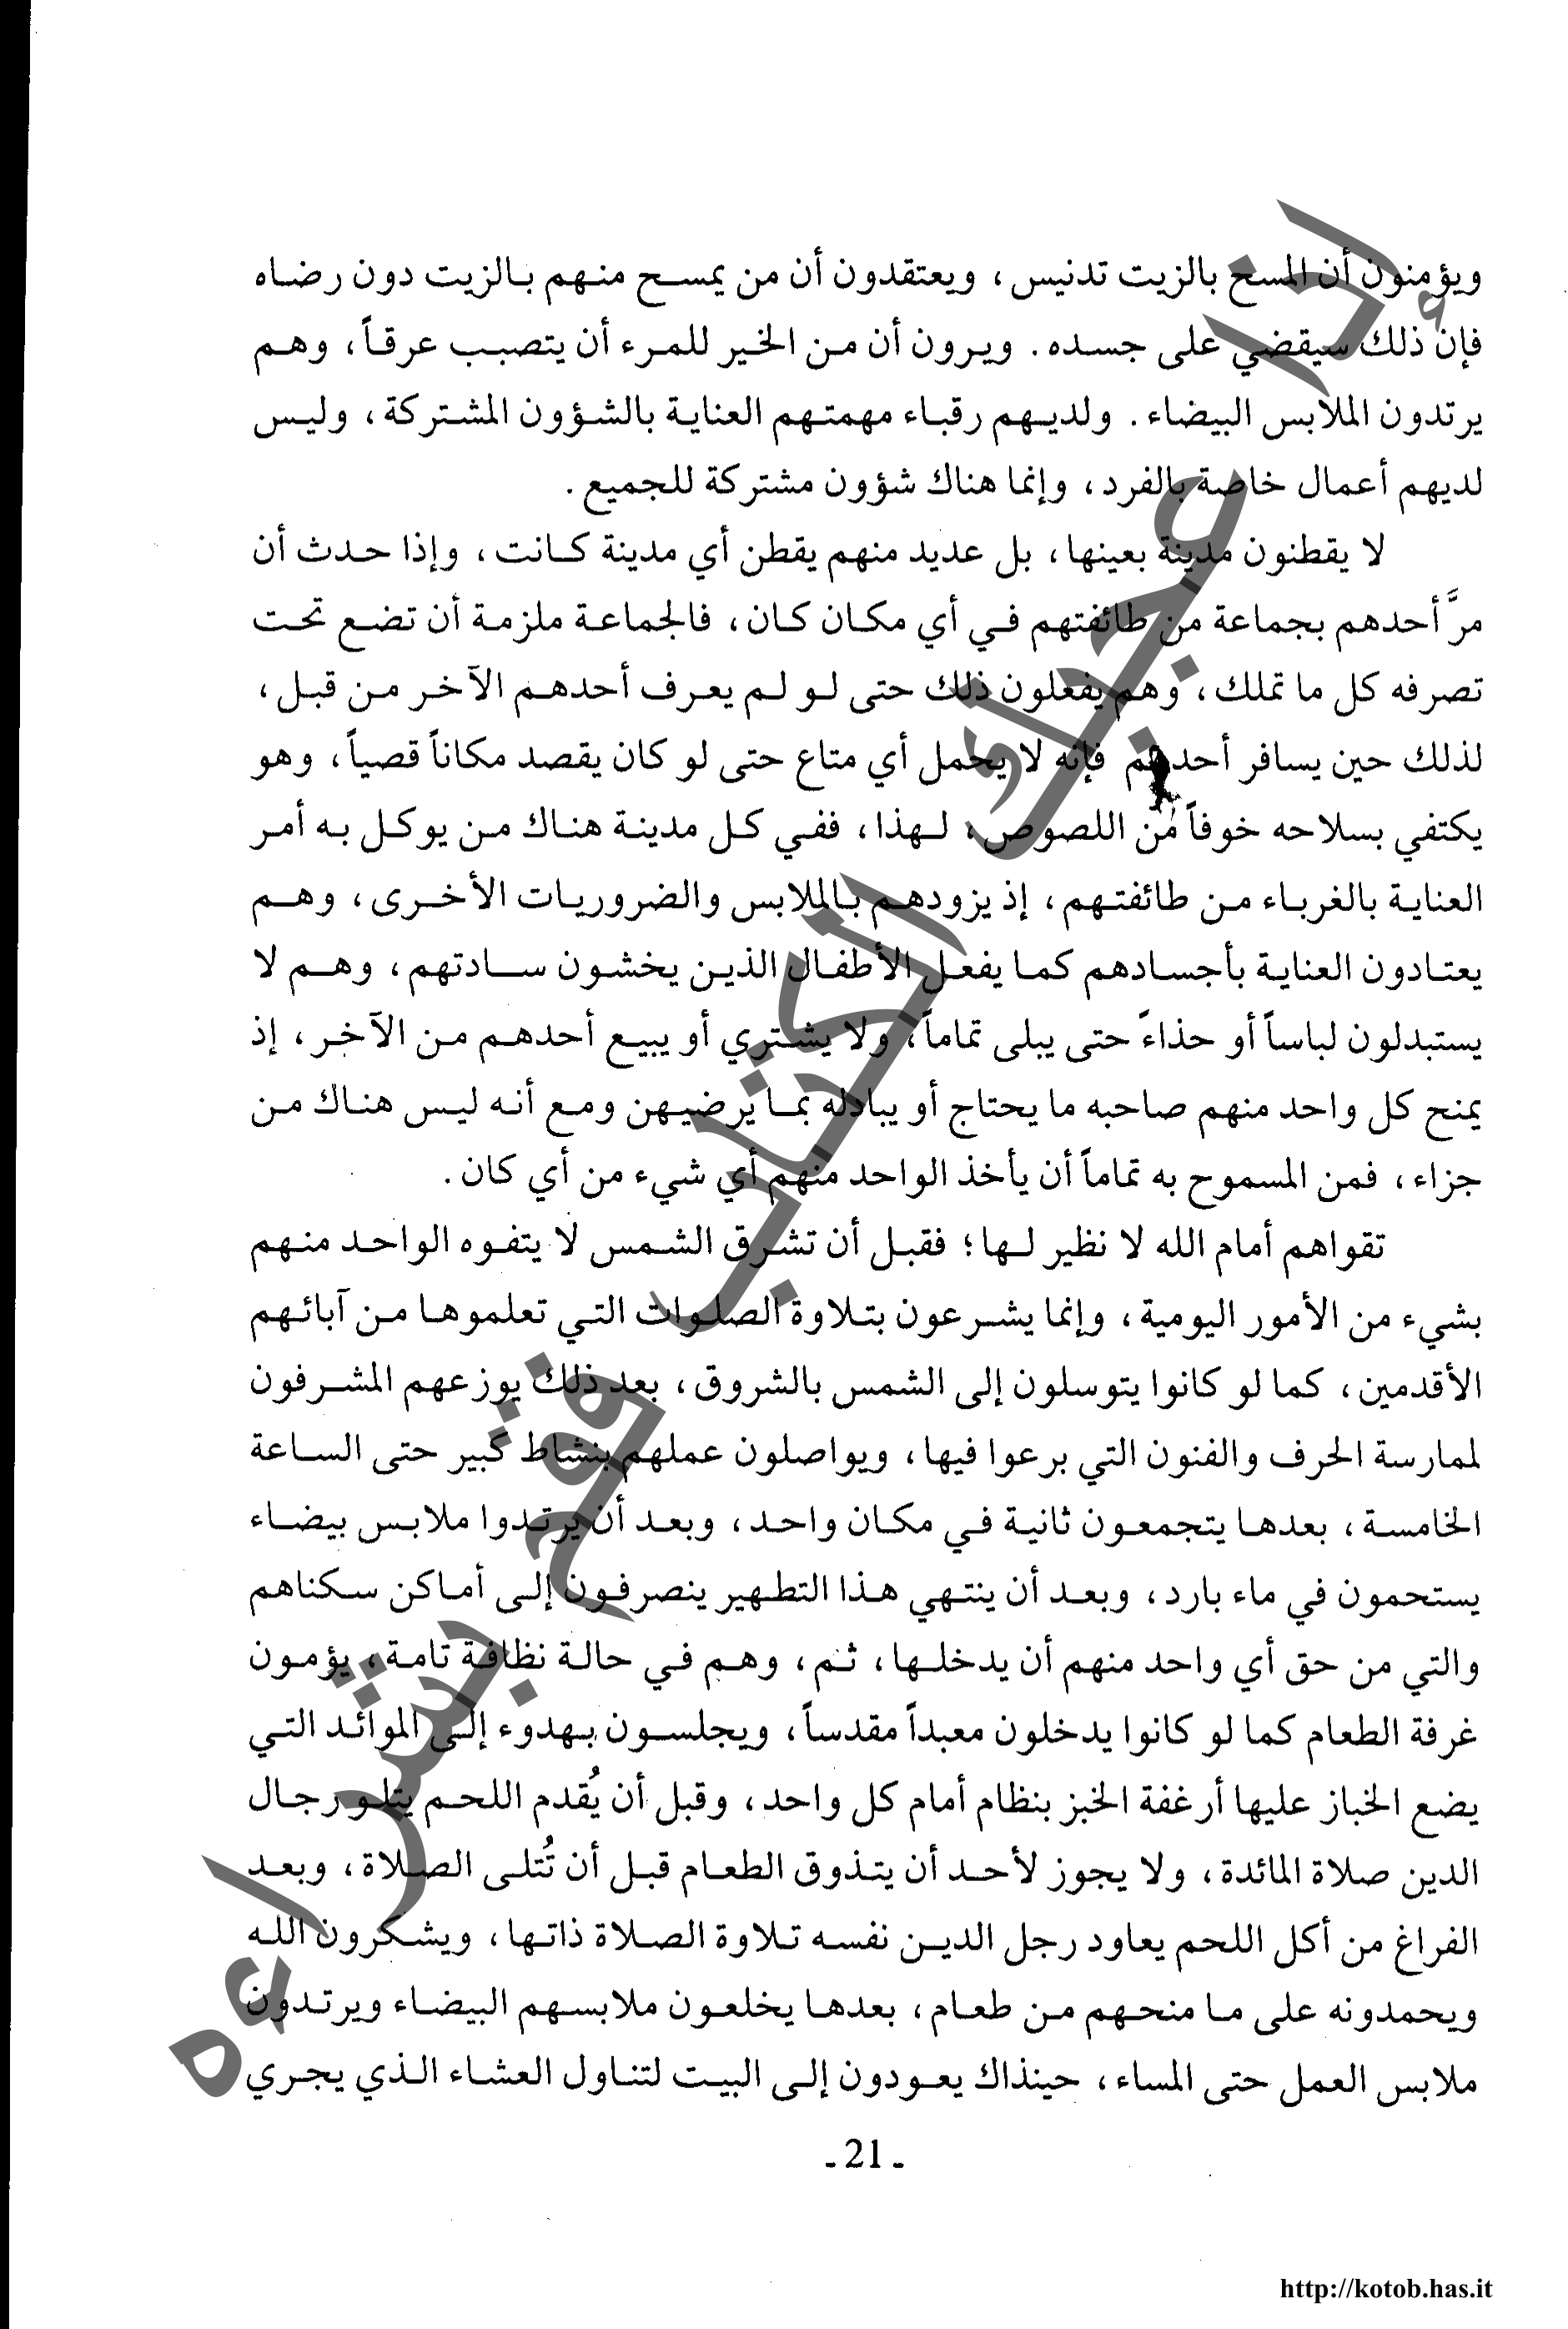 ويؤمنون أن المسح بالزيت تدنيس، ويعتقدون أن من يمسح منهم بالزيت دون رضاه
فإن ذلك سيقضي على جسده. ويرون أن من الخير للمرء أن يتصبب عرقاً، وهم
يرتدون الملابس البيضاء. ولديهم رقباء مهمتهم العناية بالشؤون المشتركة، وليس
لديهم أعمال خاصة بالفرد، وإنما هناك شؤون مشتركة للجميع.
لا يقطنون مدينة بعينها، بل عديد منهم يقطن أي مدينة كانت، وإذا حدث أن
مرَّ أحدهم بجماعة من طائفتهم في أي مكان كان، فالجماعة ملزمة أن تضع تحت
تصرفه كل ما تملك، وهم يفعلون ذلك حتى لو لم يعرف أحدهم الآخر من قبل،
لذلك حين يسافر أحدهم فإنه لا يحمل أي متاع حتى لو كان يقصد مكاناً قصياً، وهو
يكتفي بسلاحه خوفاً من اللصوص، لهذا، ففي كل مدينة هناك من يوكل به أمر
العناية بالغرباء من طائفتهم، إذ يزودهم بالملابس والضروريات الأخرى، وهم
يعتادون العناية بأجسادهم كما يفعل الأطفال الذين يخشون سادتهم، وهم لا
يستبدلون لباساً أو حذاءً حتى يبلى تماماً، ولا يشتري أو يبيع أحدهم من الآخر، إذ
يمنح كل واحد منهم صاحبه ما يحتاج أو يبادله بما يرضيهن ومع أنه ليس هناك من
جزاء، فمن المسموح به تماماً أن يأخذ الواحد منهم أي شيء من أي كان.
تقواهم أمام الله لا نظير لها؛ فقبل أن تشرق الشمس لا يتفوه الواحد منهم
بشيء من الأمور اليومية، وإنما يشرعون بتلاوة الصلوات التي تعلموها من آبائهم
الأقدمين، كما لو كانوا يتوسلون إلى الشمس بالشروق، بعد ذلك يوزعهم المشرفون
لممارسة الحرف والفنون التي برعوا فيها، ويواصلون عملهم بنشاط كبير حتى الساعة
الخامسة، بعدها يتجمعون ثانية في مكان واحد، وبعد أن يرتدوا ملابس بيضاء
يستحمون في ماء بارد، وبعد أن ينتهي هذا التطهير ينصرفون إلى أماكن سكناهم
والتي من حق أي واحد منهم أن يدخلها، ثم، وهم في حالة نظافة تامة، يؤمون
غرفة الطعام كما لو كانوا يدخلون معبداً مقدساً، ويجلسون بهدوء إلى الموائد التي
يضع الخباز عليها أرغفة الخبز بنظام أمام كل واحد، وقبل أن يُقدم اللحم يتلو رجال
الدين صلاة المائدة، ولا يجوز لأحد أن يتذوق الطعام قبل أن تُتلى الصلاة، وبعد
الفراغ من أكل اللحم يعاود رجل الدين نفسه تلاوة الصلاة ذاتها، ويشكرون الله
ويحمدونه على ما منحهم من طعام، بعدها يخلعون ملابسهم البيضاء ويرتدون
ملابس العمل حتى المساء، حينذاك يعودون إلى البيت لتناول العشاء الذي يجري
- 21 -
http://kotob.has.it
إذا أعجبك الكتاب فقم بشراءه